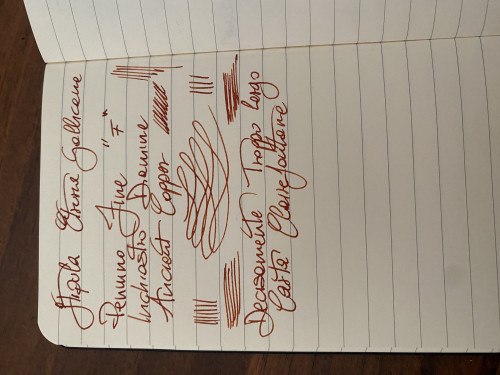 Stipula Etruria
Pennino Fine "F"
Inchiostro Diamine
Ancient Copper
Decisamente Troppo Largo
Carta Clairefontaine